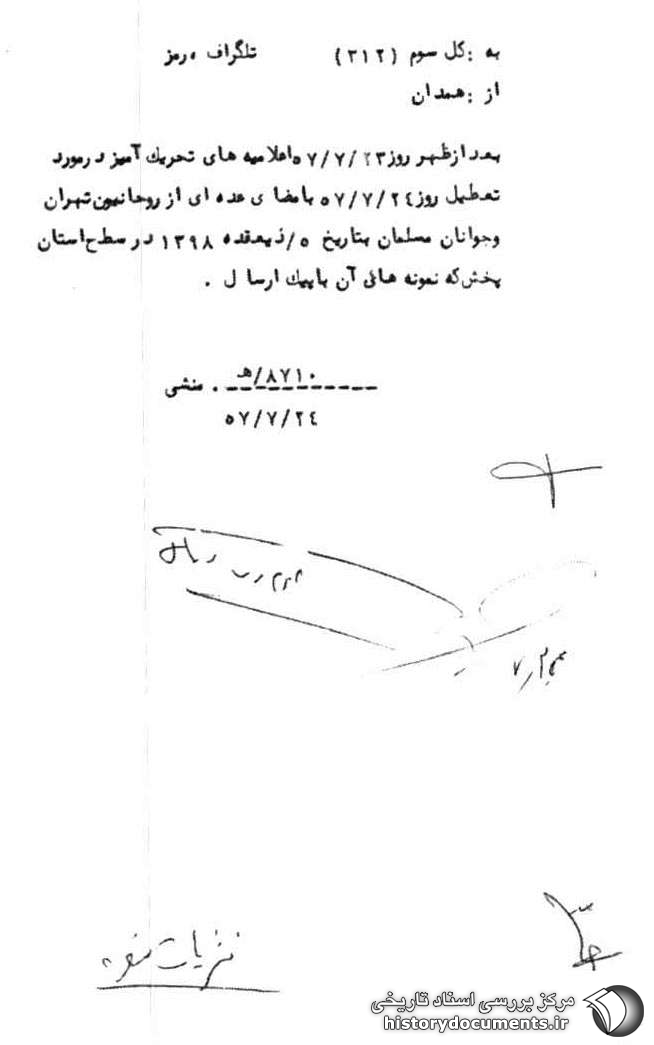 به : کل سوم (۳۱۲) تلگراف ، رمز
از : همدان
بعد از ظهر روز ۵۷/۷/۲۳ اعلامیه های تحریک آمیز در مورد
تعطیل روز ۵۷/۷/۲٤ بامضا ی عده ای از روحانیون تهران
و جوانان مسلمان بتاریخ ۵/ ذیعقده ۱۳۹۸ در سطح استان
پخش که نمونه هائی آن با پیک ارسا ل .
۸۷۱۰/هـ
. منشی
۵۷/۷/۲٤
نشریات مضره
مرکز بررسی اسناد تاریخی
historydocuments.ir